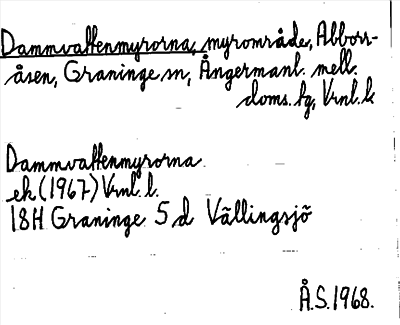 Dammvattenmyrorna, myrområde, Abborr-
åsen, Graninge sn, Ångermanl. mell.
doms. hg, Vrnl. k
Dammvattenmyrorna
ek (1967) Vrnl. l.
18H Graninge 5 d Vällingsjö
Å.S. 1968.